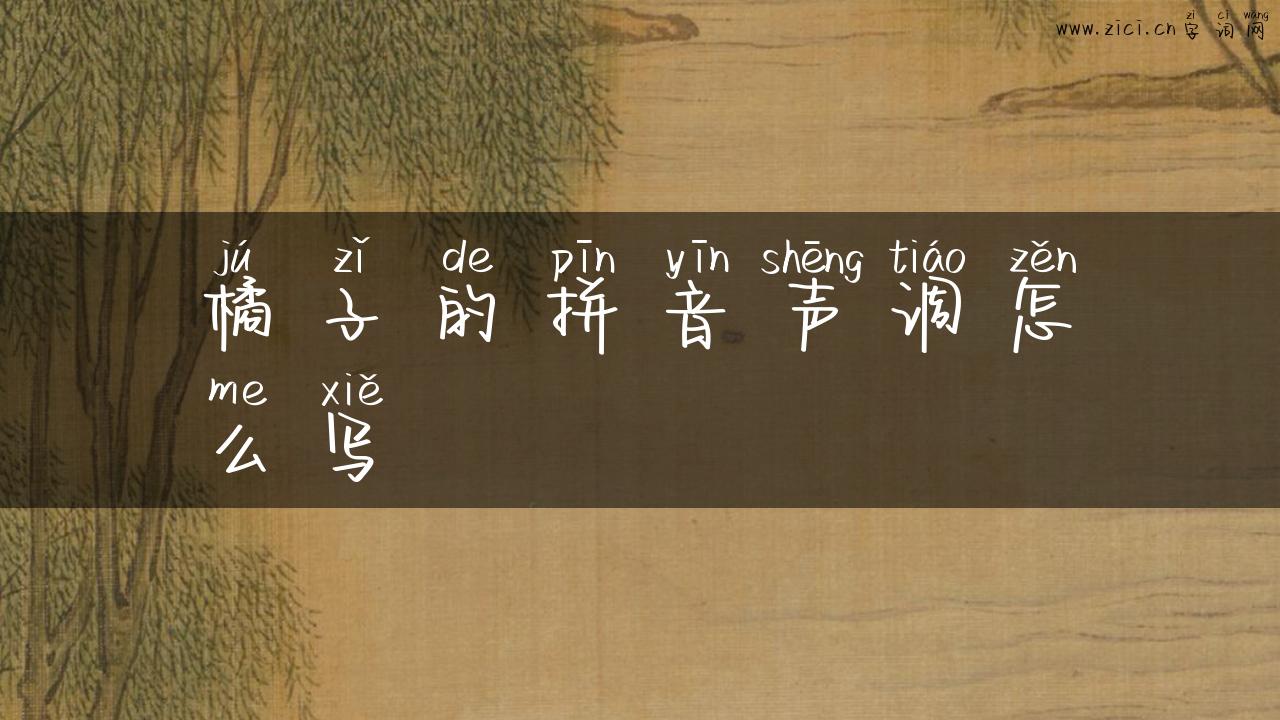 zì cí wǎng
www.zici.cn 字词网
jú zǐ de pīn yīn shēng tiáo zěn
橘子的拼音声调怎
me xiě
么写